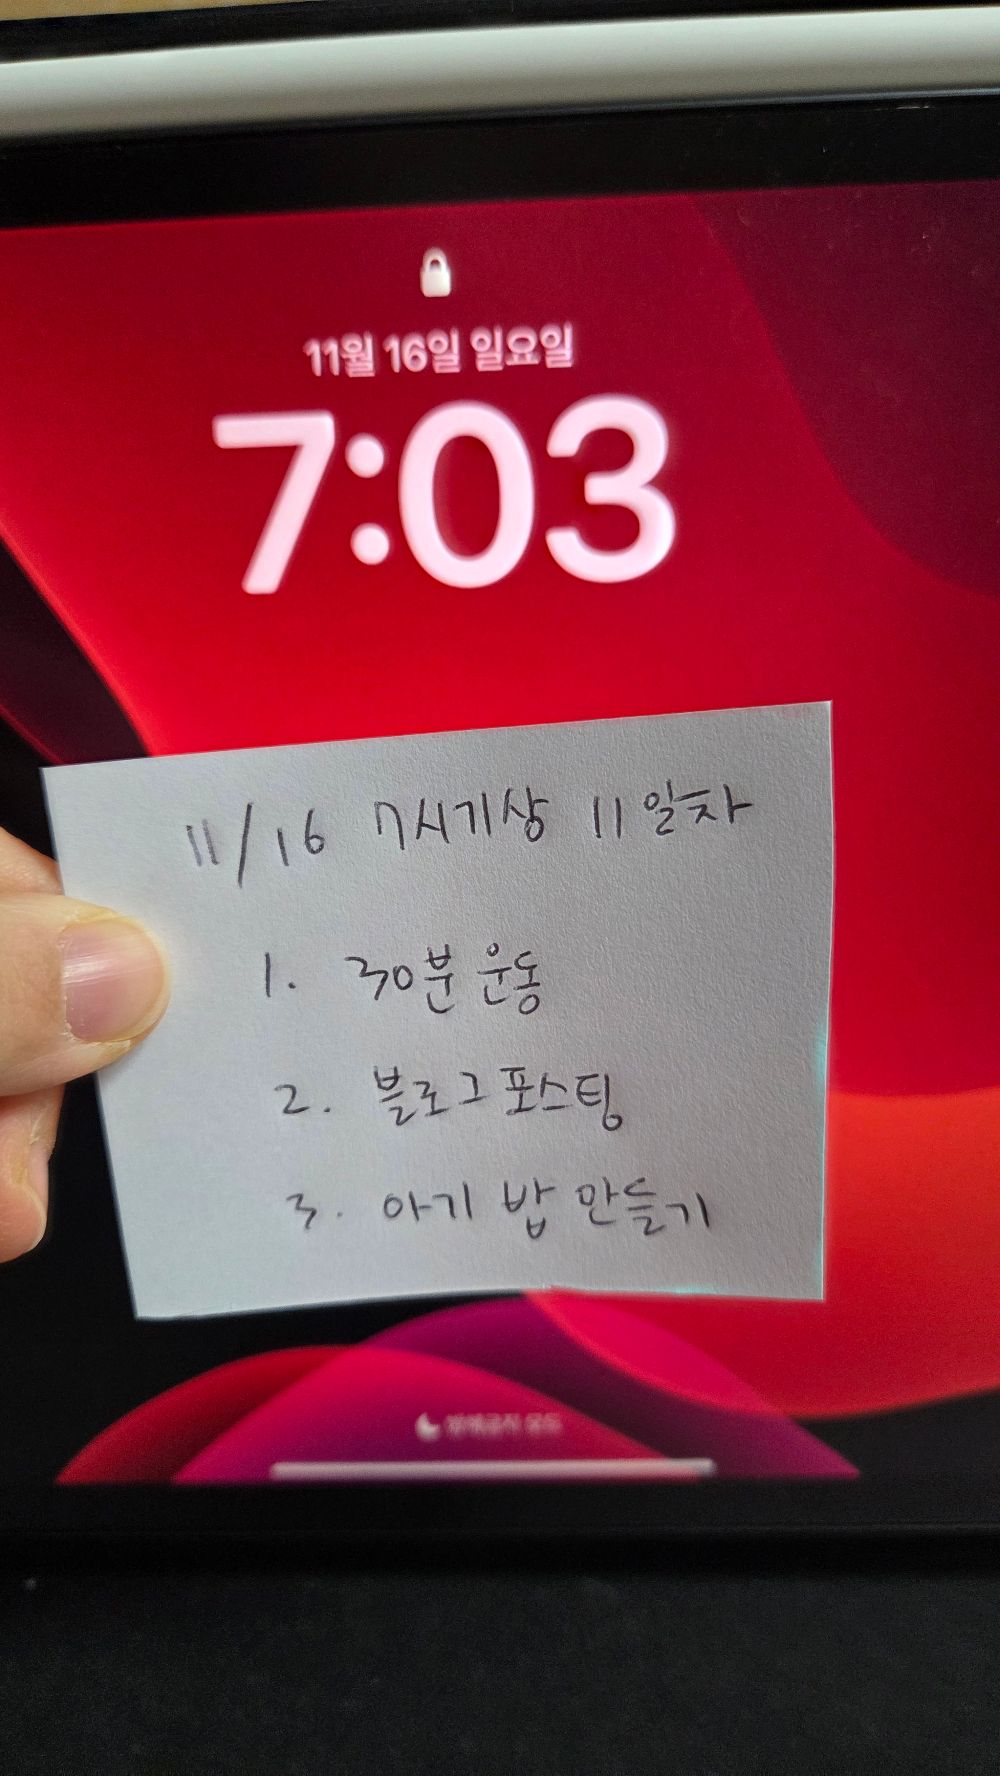 11월 16일 일요일
7:03
11/16 7시기상 11일차
1. 30분 운동
2. 블로그 포스팅
3. 아기 밥 만들기
방해금지 모드